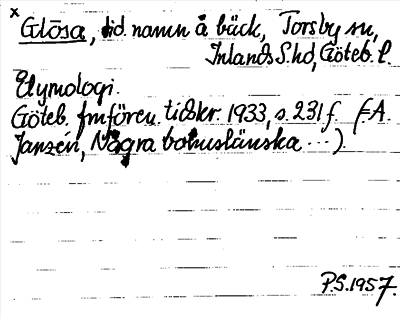 x
Glösa, tid. namn å bäck, Torsby sn,
Inlands S. hd, Göteb. l.
Etymologi.
Göteb. fmfören. tidskr. 1933, s. 231 f. (f. A.
Janzén, Några bohuslänska ...).
P.S. 1957.